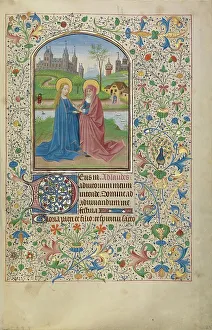 Deus in Ad laudes
adiutorium meum
intende. Domine ad
adiuuandum me
festina
Gloria patri et filio: et spiritui